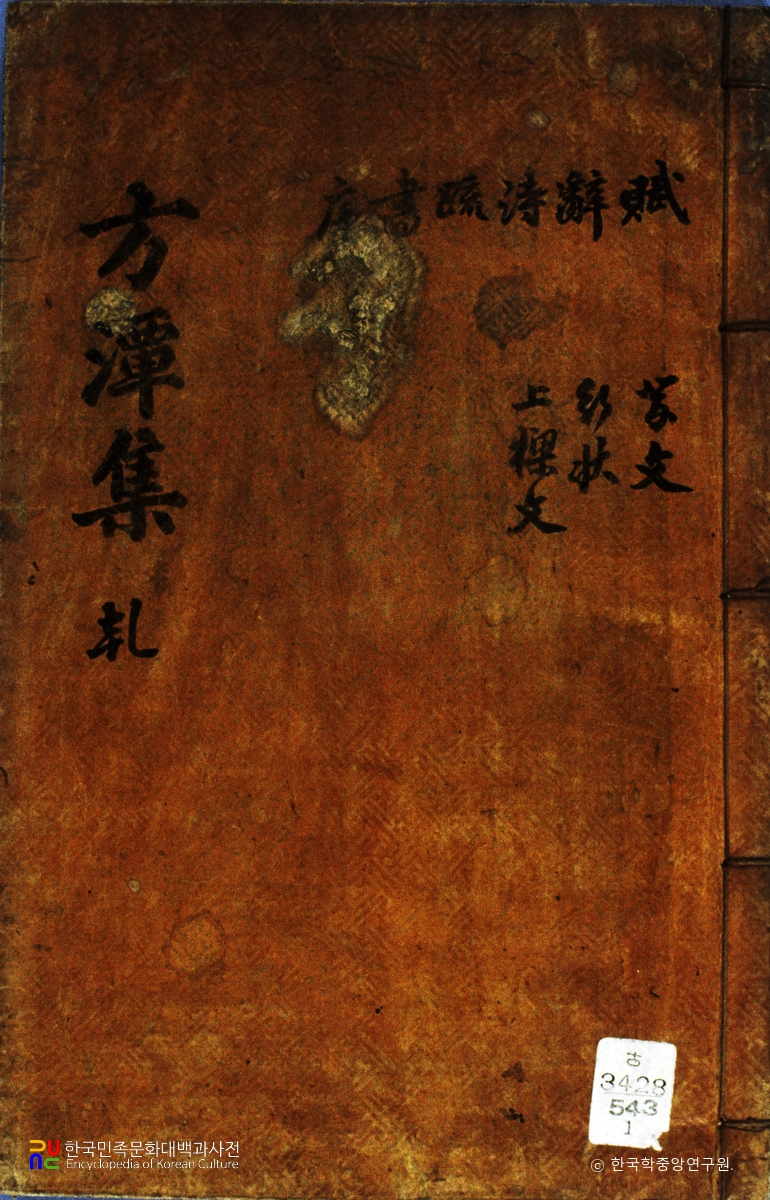 賦
辭
詩
疏
書
序
祭文
行狀
上樑文
方潭集
古
3428
543
1
한국민족문화대백과사전
Encyclopedia of Korean Culture
© 한국학중앙연구원.